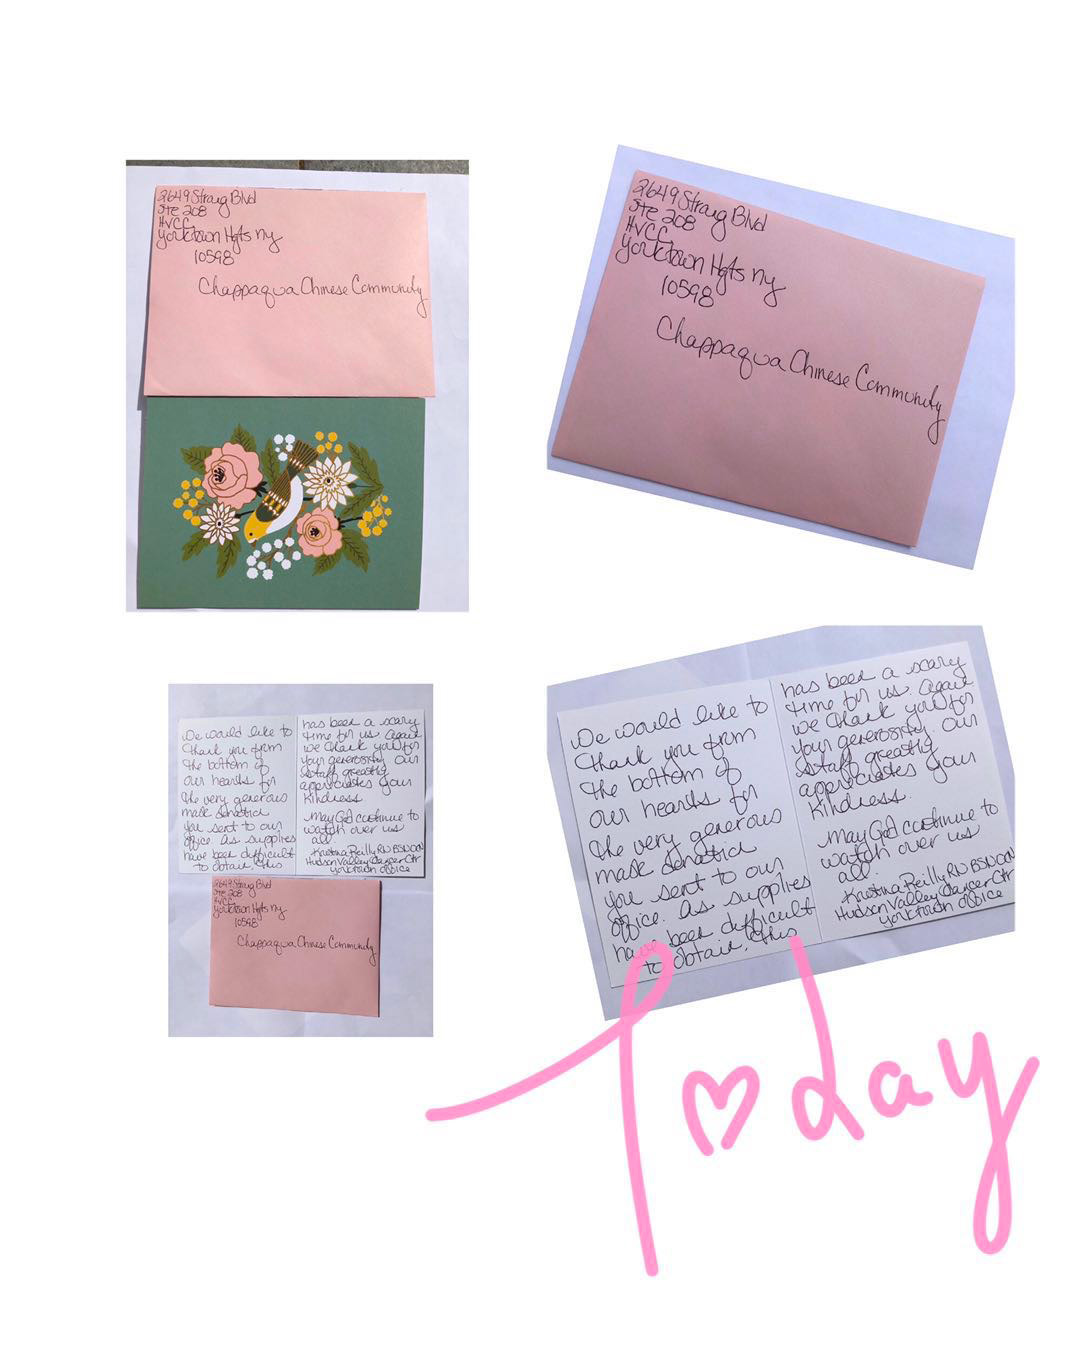 2649 Strang Blvd
Ste 208
HVCC
Yorktown Hgts ny
10598
Chappaqua Chinese Community
2649 Strang Blvd
Ste 208
HVCC
Yorktown Hgts ny
10598
Chappaqua Chinese Community
We would like to
thank you from
the bottom of
our hearts for
the very generous
mask donation
you sent to our
office. As supplies
have been difficult
to obtain, this
has been a scary
time for us. Again
we thank you for
your generosity. Our
staff greatly
appreciates your
kindness.
May God continue to
watch over us
all.
Kristina Reilly RN BSN OCN
Hudson Valley Cancer Ctr
Yorktown office
2649 Strang Blvd
Ste 208
HVCC
Yorktown Hgts ny
10598
Chappaqua Chinese Community
We would like to
thank you from
the bottom of
our hearts for
the very generous
mask donation
you sent to our
office. As supplies
have been difficult
to obtain, this
has been a scary
time for us. Again
we thank you for
your generosity. Our
staff greatly
appreciates your
kindness.
May God continue to
watch over us
all.
Kristina Reilly RN BSN OCN
Hudson Valley Cancer Ctr
Yorktown office
Today